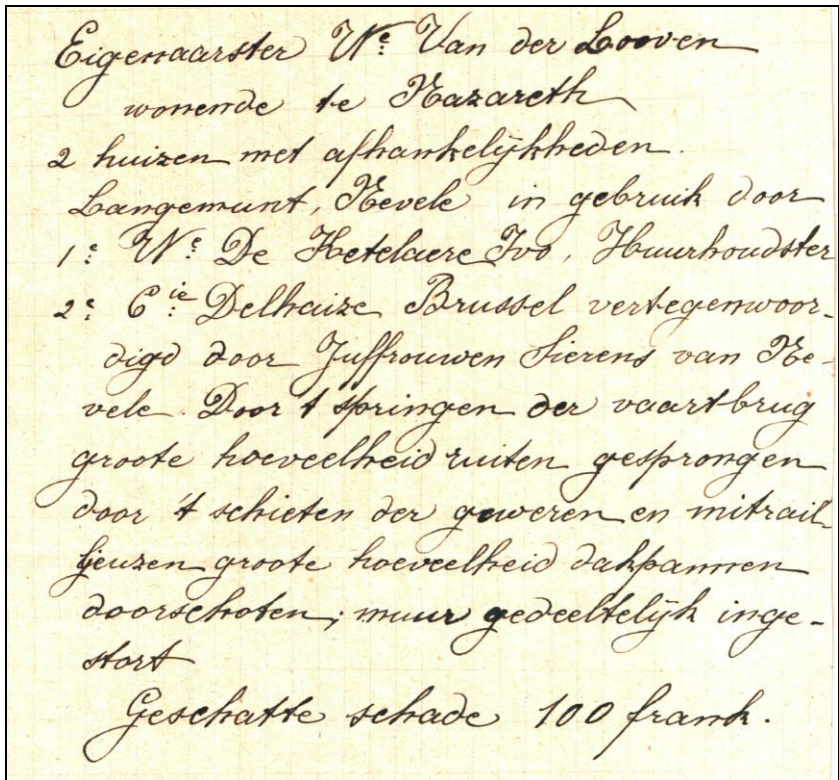 Eigenaarster We: Van der Looven
wonende te Nazareth
2 huizen met afhankelijkheden.
Langemunt, Nevele in gebruik door
1e: We: De Ketelaere Ivo, Huurhoudster
2e: Cie: Delhaize Brussel vertegenwoor-
digd door Juffrouwen Sierens van Ne-
vele. Door 't springen der vaartbrug
groote hoeveelheid ruiten gesprongen
door 't schieten der geweren en mitrail-
ljeuzen groote hoeveelheid dakpannen
doorschoten; muur gedeeltelijk inge-
stort
Geschatte schade 100 frank.